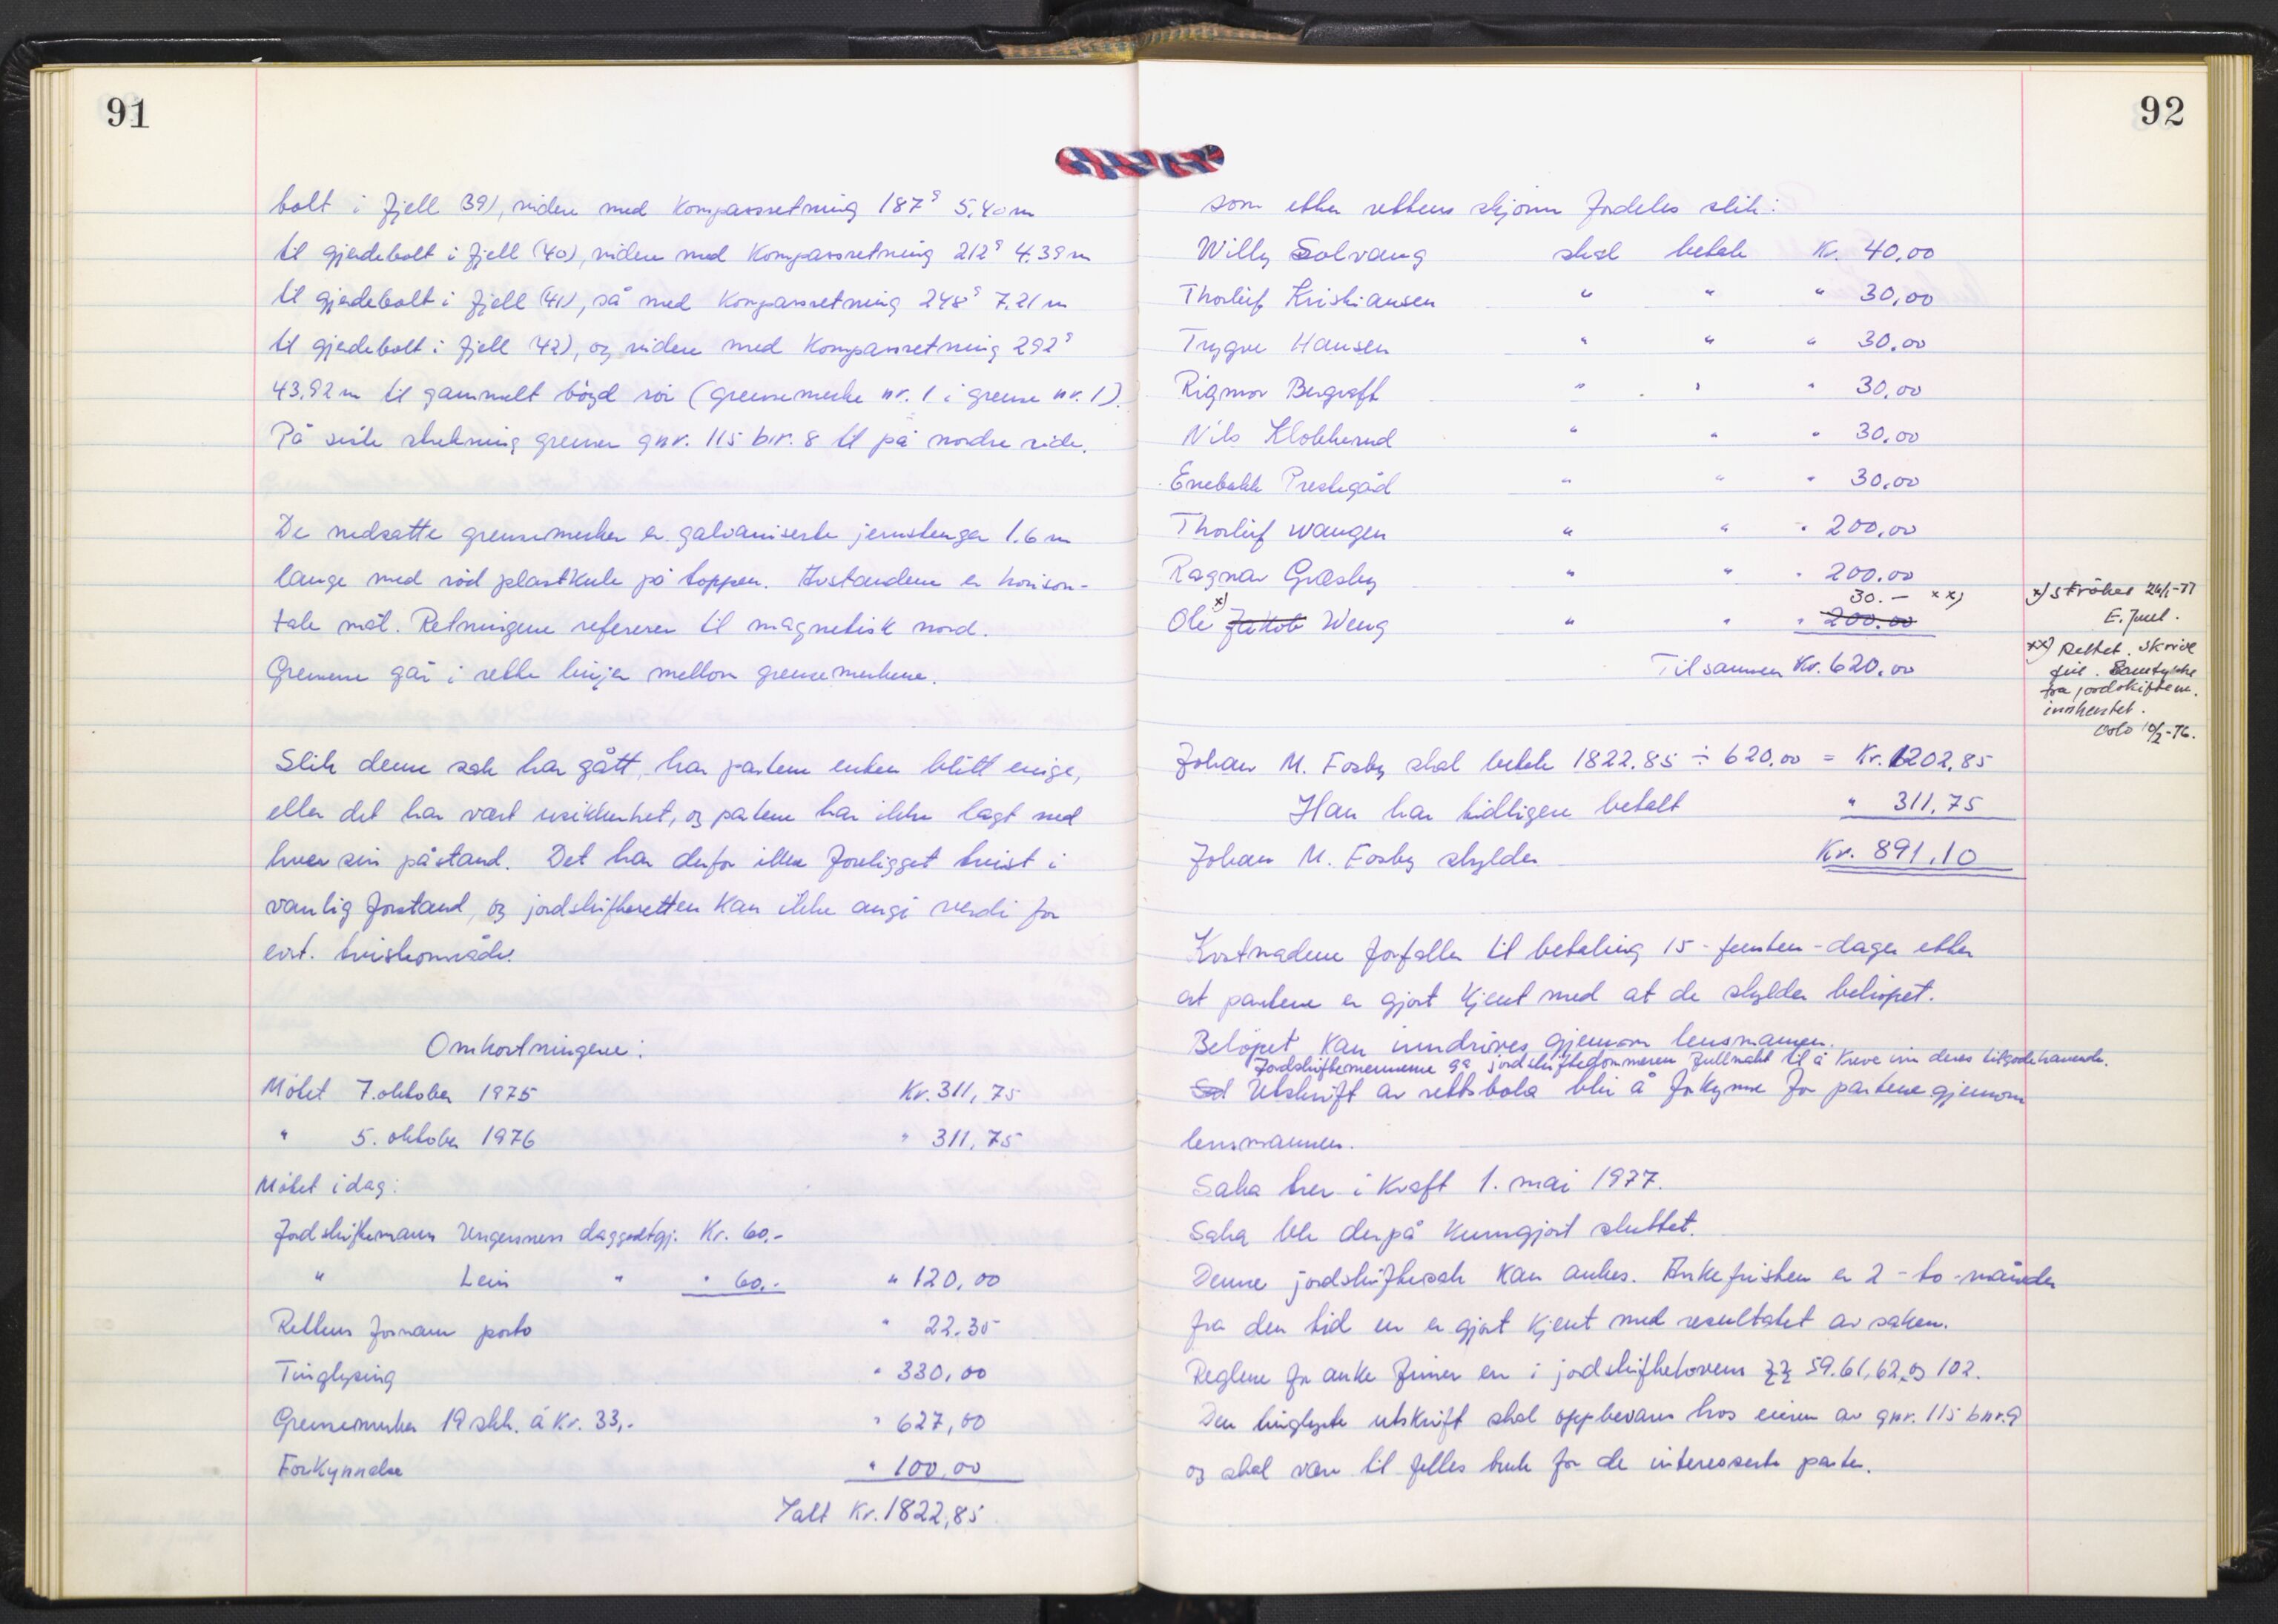 91
bolt i fjell (39), videre med kompassretning 187g 5.40 m
til gjerdebolt i fjell (40), videre med kompassretning 212g 4.39 m
til gjerdebolt i fjell (41), så med kompassretning 248g 7.21 m
til gjerdebolt i fjell (42), og videre med kompassretning 292g
43.92 m til gammelt bøyd rør (grensemerke nr. 1 i grense nr. 1).
På siste strekning grenser gnr. 115 bnr. 8 til på nordre side.
De nedsatte grensemerker er galvaniserte jernstenger 1.6 m
lange med rød plastkule på toppen. Avstandene er horison-
tale mål. Retningene refererer til magnetisk nord.
Grensene går i rette linjer mellom grensemerkene.
Slik denne sak har gått, har partene enten blitt enige,
eller det har vært usikkerhet, og partene har ikke lagt ned
hver sin påstand. Det har derfor ikke foreligget tvist i
vanlig forstand, og jordskifteretten kan ikke angi verdi for
evt. tvisteområde.
Omkostningene:
Møtet 7. oktober 1975 Kr. 311,75
" 5. oktober 1976 " 311,75
Møtet i dag:
Jordskiftemann Ungersness daggodtgj. Kr. 60.-
" Lein " " 60.- " 120,00
Rettens formann porto " 22.35
Tinglysing " 330,00
Grensemerker 19 stk. á kr. 33,- " 627,00
Forkynnelse " 100,00
Ialt Kr. 1822,85
92
som etter rettens skjønn fordeles slik:
Willy Solvang skal betale Kr. 40,00
Thorleif Kristiansen " " " 30,00
Trygve Hansen " " " 30.00
Rigmor Bergraft " " " 30,00
Nils Klokkerud " " " 30,00
Enebakk Prestegård " " " 30,00
Thorleif Wangen " " " 200,00
Ragnar Græsby " " " 200.00
30.- xx)
Ole x) Jakob Weng " " " 200.00
Tilsammen Kr. 620,00
x) Strøket 26/1-77
E. Juel.
xx) Rettet. Skrive
feil. Samtykke
fra jordskiftem.
innhentet.
Oslo 10/2-76.
Johan M. Fosby skal betale 1822.85 ÷ 620.00 = Kr. 1202,85
Han har tidligere betalt " 311,75
Johan M. Fosby skylder Kr. 891,10
Kostnadene forfaller til betaling 15 - femten - dager etter
at partene er gjort kjent med at de skylder beløpet.
Beløpet kan inndrives gjennom lensmannen.
Jordskiftemennene ga jordskiftedommeren fullmakt til å kreve inn deres tilgodehavende.
Utskrift av rettsboka blir å forkynne for partene gjennom
lensmannen.
Saka trer i kraft 1. mai 1977.
Saka ble derpå kunngjort sluttet.
Denne jordskiftesak kan ankes. Ankefristen er 2 - to - måneder
fra den tid en er gjort kjent med resultatet av saken.
Reglene for anke finner en i jordskiftelovens §§ 59. 61, 62, og 102.
Den tinglyste utskrift skal oppbevares hos eieren av gnr. 115 bnr. 9
og skal være til felles bruk for de interesserte parter.